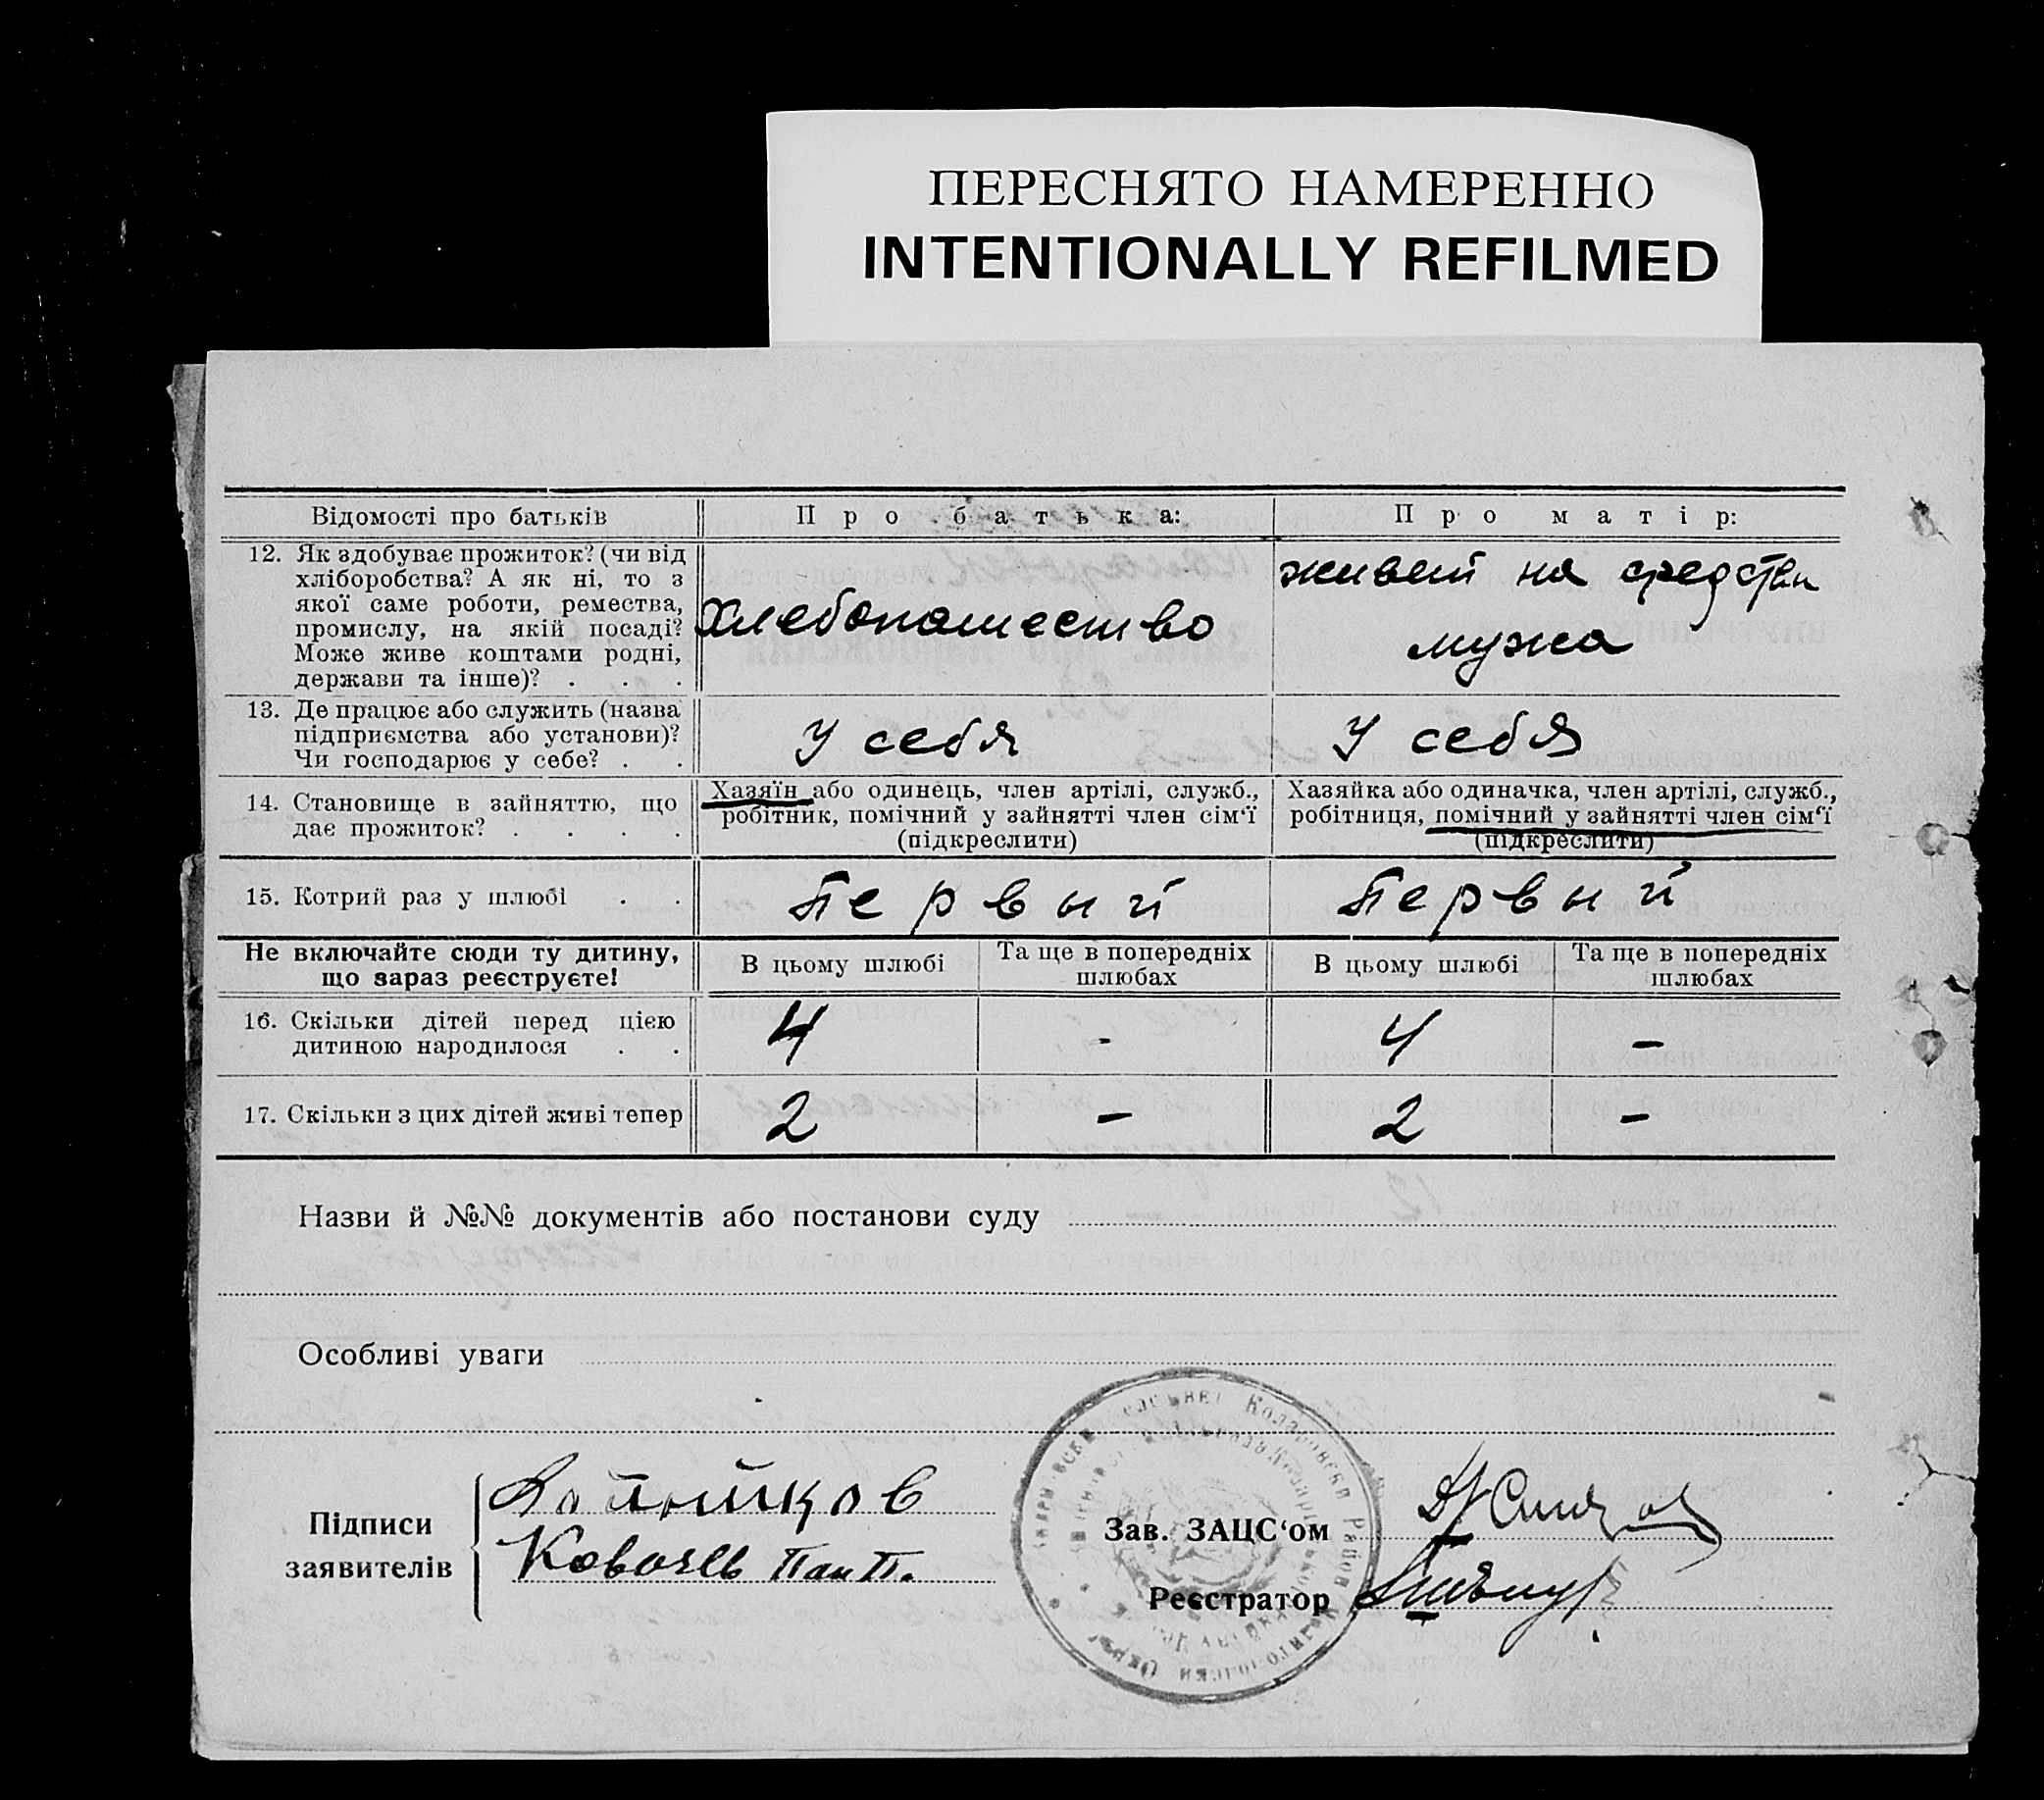 ПЕРЕСНЯТО НАМЕРЕННО
INTENTIONALLY REFILMED
Відомості про батьків
Про батька:
Про матір:
12. Як здобуває прожиток? (чи від
хліборобства? А як ні, то з
якої саме роботи, ремества,
промислу, на якій посаді?
Може живе коштами родні,
держави та інше)? . . .
Хлебопашество
живет на средства
мужа
13. Де працює або служить (назва
підприємства або установи)?
Чи господарює у себе? . .
У себя
У себя
14. Становище в зайняттю, що
дає прожиток? . . . .
Хазяїн або одинець, член артілі, служб.,
робітник, помічний у зайнятті член сім'ї
(підкреслити)
Хазяйка або одиначка, член артілі, служб.,
робітниця, помічний у зайнятті член сім'ї
(підкреслити)
15. Котрий раз у шлюбі . .
Первый
Первый
Не включайте сюди ту дитину,
що зараз реєструєте!
В цьому шлюбі
Та ще в попередніх
шлюбах
В цьому шлюбі
Та ще в попередніх
шлюбах
16. Скільки дітей перед цією
дитиною народилося . .
4
-
4
–
17. Скільки з цих дітей живі тепер
2
–
2
–
Назви й №№ документів або постанови суду
Особливі уваги
Підписи
заявителів
Ковачев Пант.
Зав. ЗАЦС'ом
Реєстратор